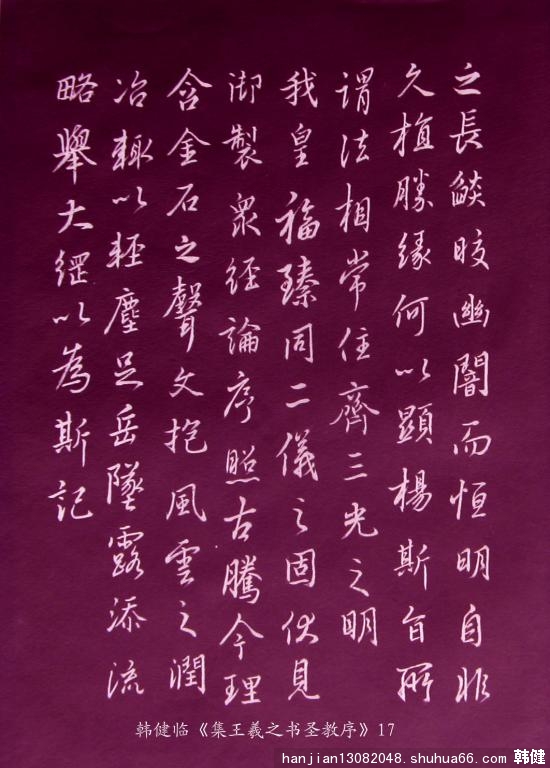 之長燄晈幽闇而恒明自非
久植勝緣何以顯楊斯旨所
謂法相常住齊三光之明
我皇福臻同二儀之固伏見
御製眾經論序照古騰今理
含金石之聲文抱風雲之潤
治輒以輕塵足岳墜露添流
略舉大綱以為斯記
韩健临《集王羲之书圣教序》17
hanjian13082048.shuhua66.com 韩健